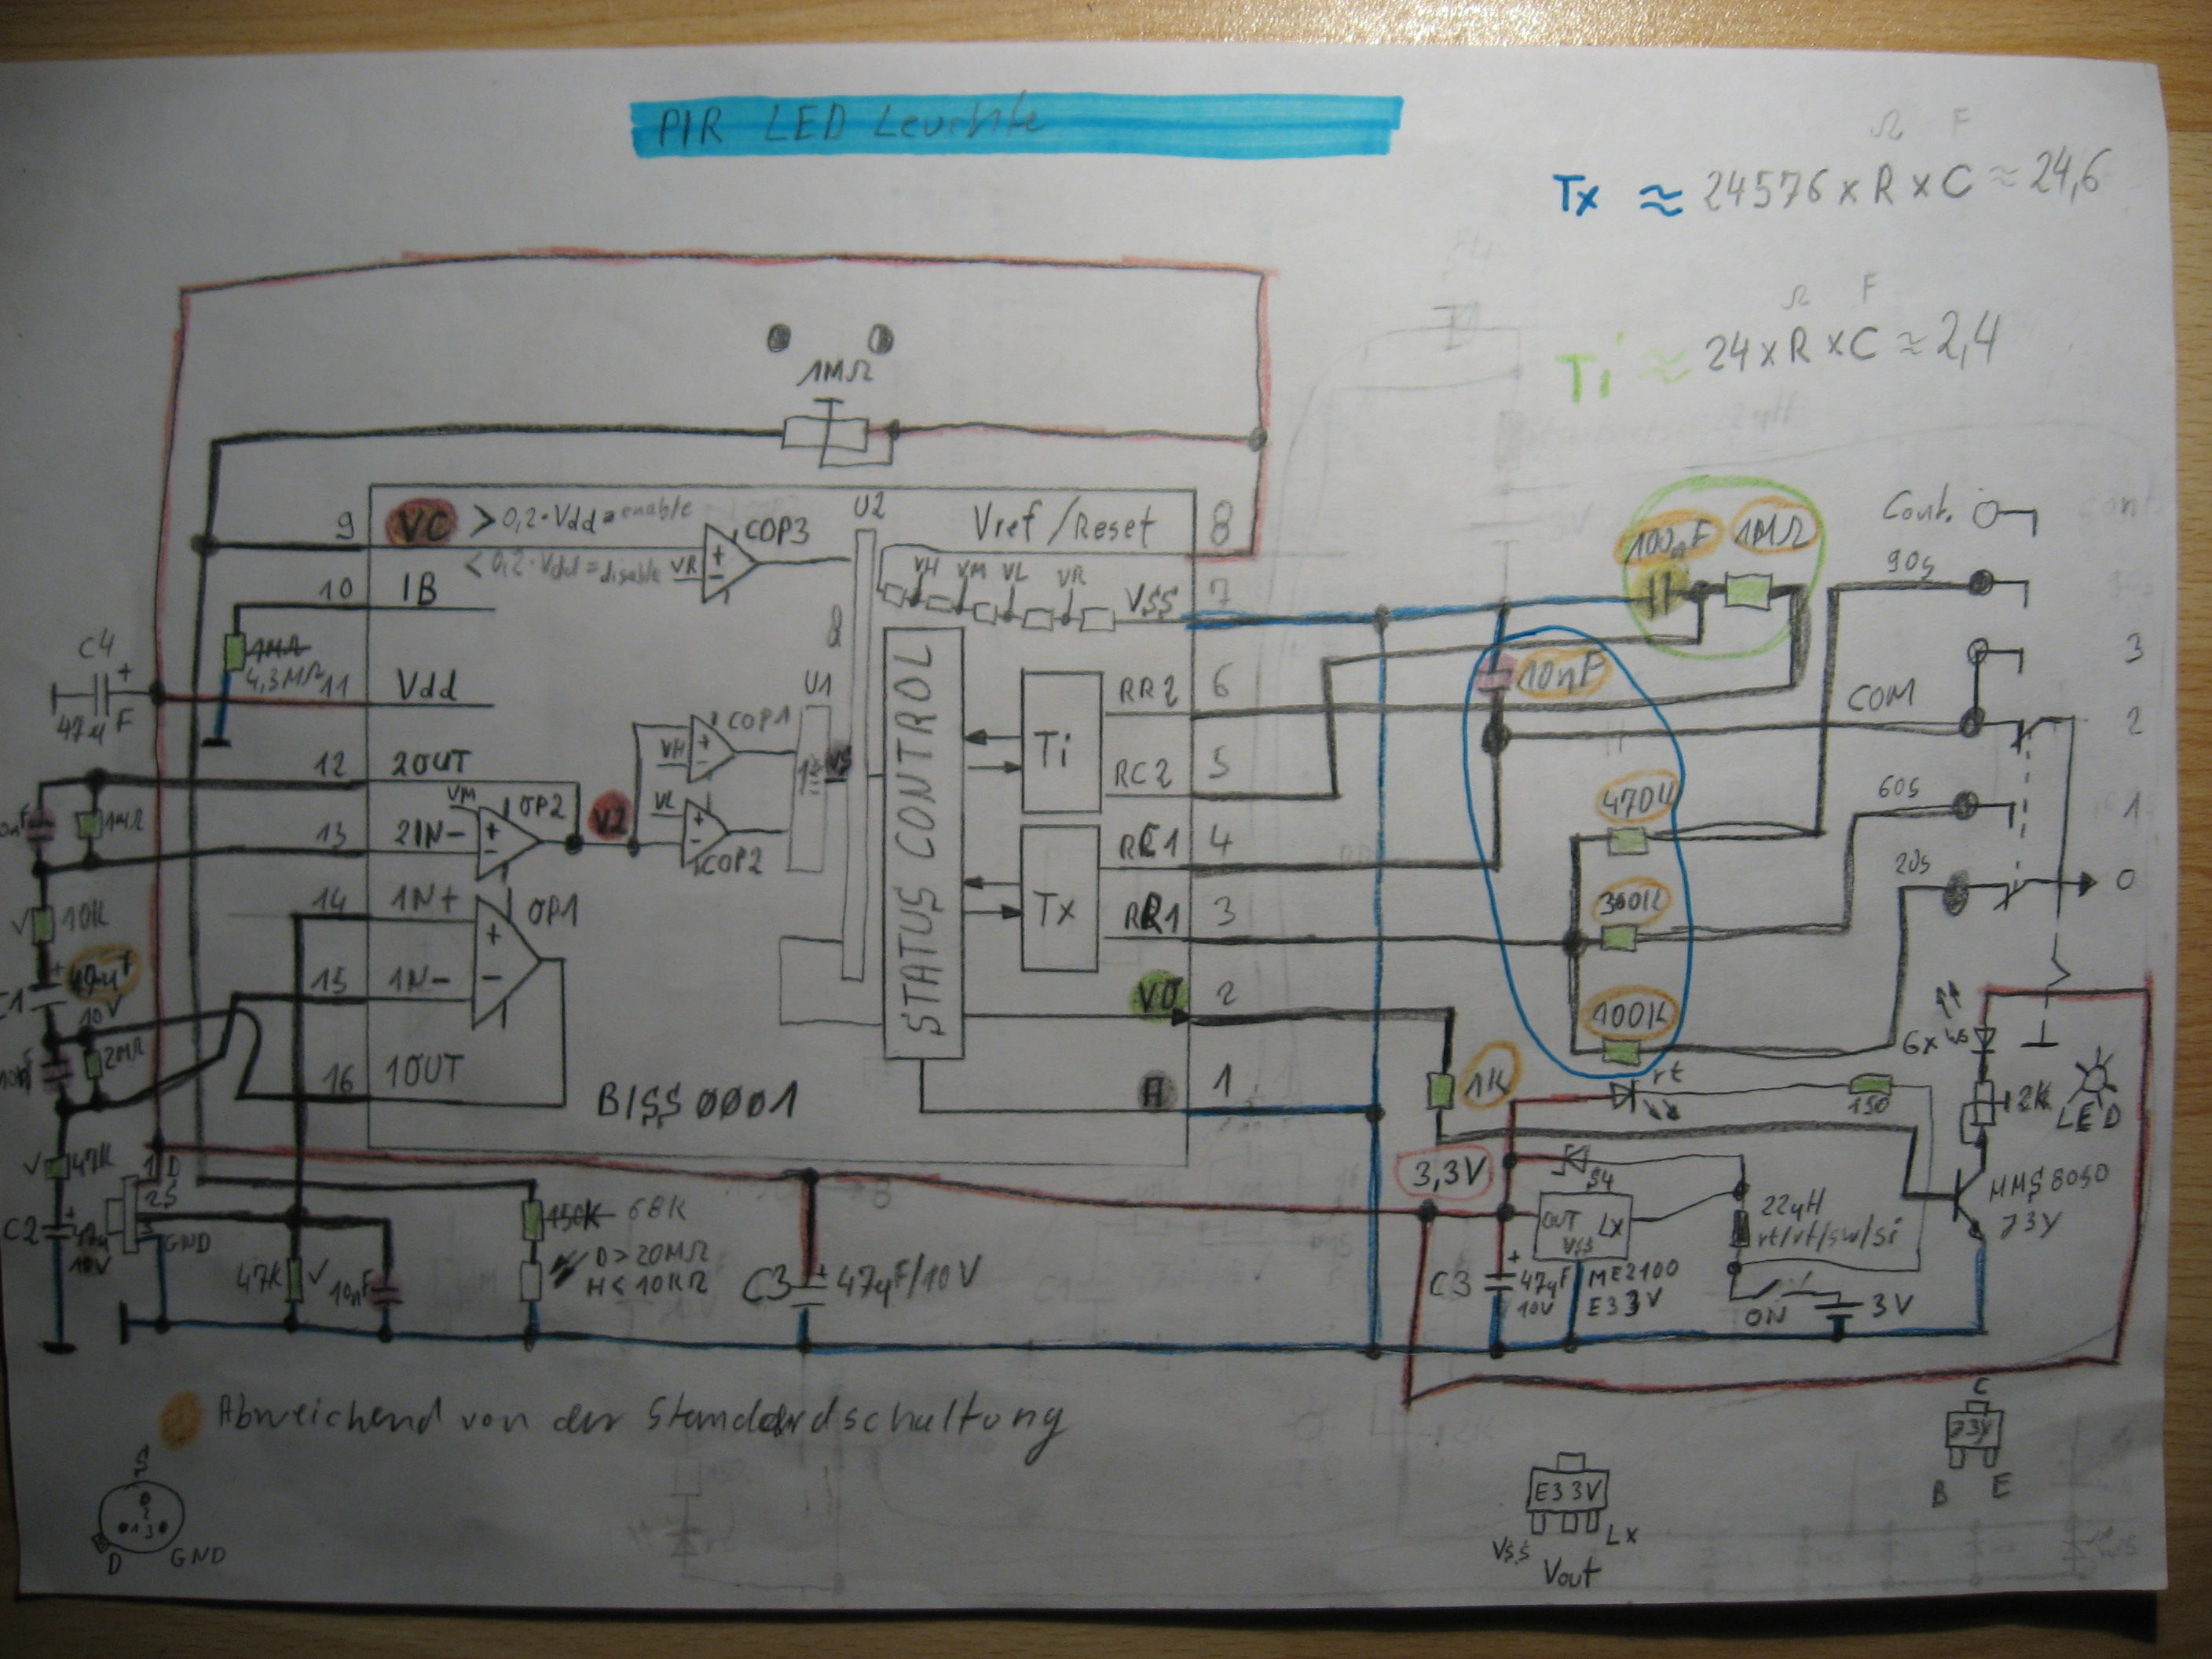 PIR LED Leuchte
Ω F
Tx ≈ 24576 x R x C ≈ 24,6
Ω F
Ti ≈ 24 x R x C ≈ 2,4
1MΩ
9 VC > 0,2·Vdd = enable
< 0,2·Vdd = disable
VR
COP3
U2
Vref/Reset 8
10 IB
VH VM VL VR
VSS 7
1MΩ
4,3MΩ
C4
+
47µF
11 Vdd
&
U1
COP1
VH
VS
STATUS CONTROL
Ti
RR2 6
RC2 5
12 2OUT
VM
OP2
V2
VL
COP2
1MΩ
13 2IN-
RC1 4
14 1N+
OP1
Tx
RR1 3
10K
15 1N-
VO 2
10V
2MΩ
16 1OUT
BISS0001
A 1
100nF 1MΩ
Cont.
90s
3
10nF
COM
2
470K
60s
1
300K
20s
0
100K
1K
rt
150
6x ws
2K
LED
47K
1D
2S
3
GND
C2
+
10V
150K 68K
D > 20MΩ
H < 10KΩ
47K
10nF
C3 + 47µF/10V
3,3V
S4
OUT LX
VSS
22µH
rt/rt/sw/si
MMS8050
J3Y
C3 + 47µF
10V
ME2100
E33V
ON
3V
Abweichend von der Standardschaltung
S
2
1 3
D GND
E33V
Vss Lx
Vout
C
J3Y
B E